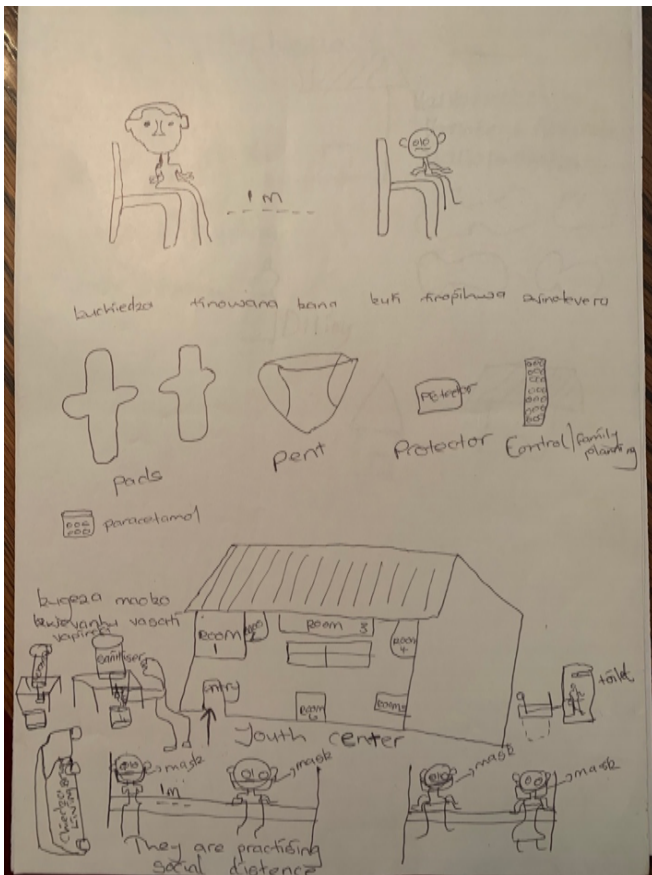 1 m
kuchiedza tinowana bana kuti tinopihwa zvinotevera
pads
pent
Protector
Protector
Control/family
planning
paracetamol
kugeza maoko
kwevanhu vasati
vapinda
sanitiser
Room
1
Room 3
Room
4
entry
Room
Room 5
toilet
Youth center
mask
1m
mask
mask
mask
They are practising
social distance